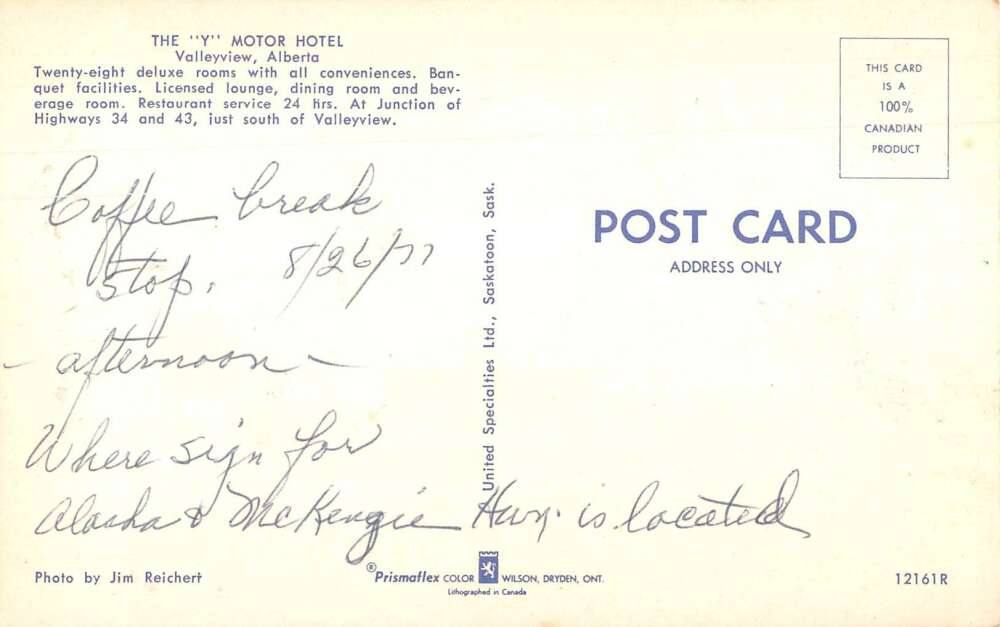 THE "Y" MOTOR HOTEL
Valleyview, Alberta
Twenty-eight deluxe rooms with all conveniences. Ban-
quet facilities. Licensed lounge, dining room and bev-
erage room. Restaurant service 24 hrs. At Junction of
Highways 34 and 43, just south of Valleyview.
Coffee break
stop. 8/26/77
- afternoon -
Where sign for
Alaska & McKenzie Hwy. is located
United Specialties Ltd., Saskatoon, Sask.
THIS CARD
IS A
100%
CANADIAN
PRODUCT
POST CARD
ADDRESS ONLY
Photo by Jim Reichert
®Prismaflex COLOR WILSON, DRYDEN, ONT.
Lithographed in Canada
12161R